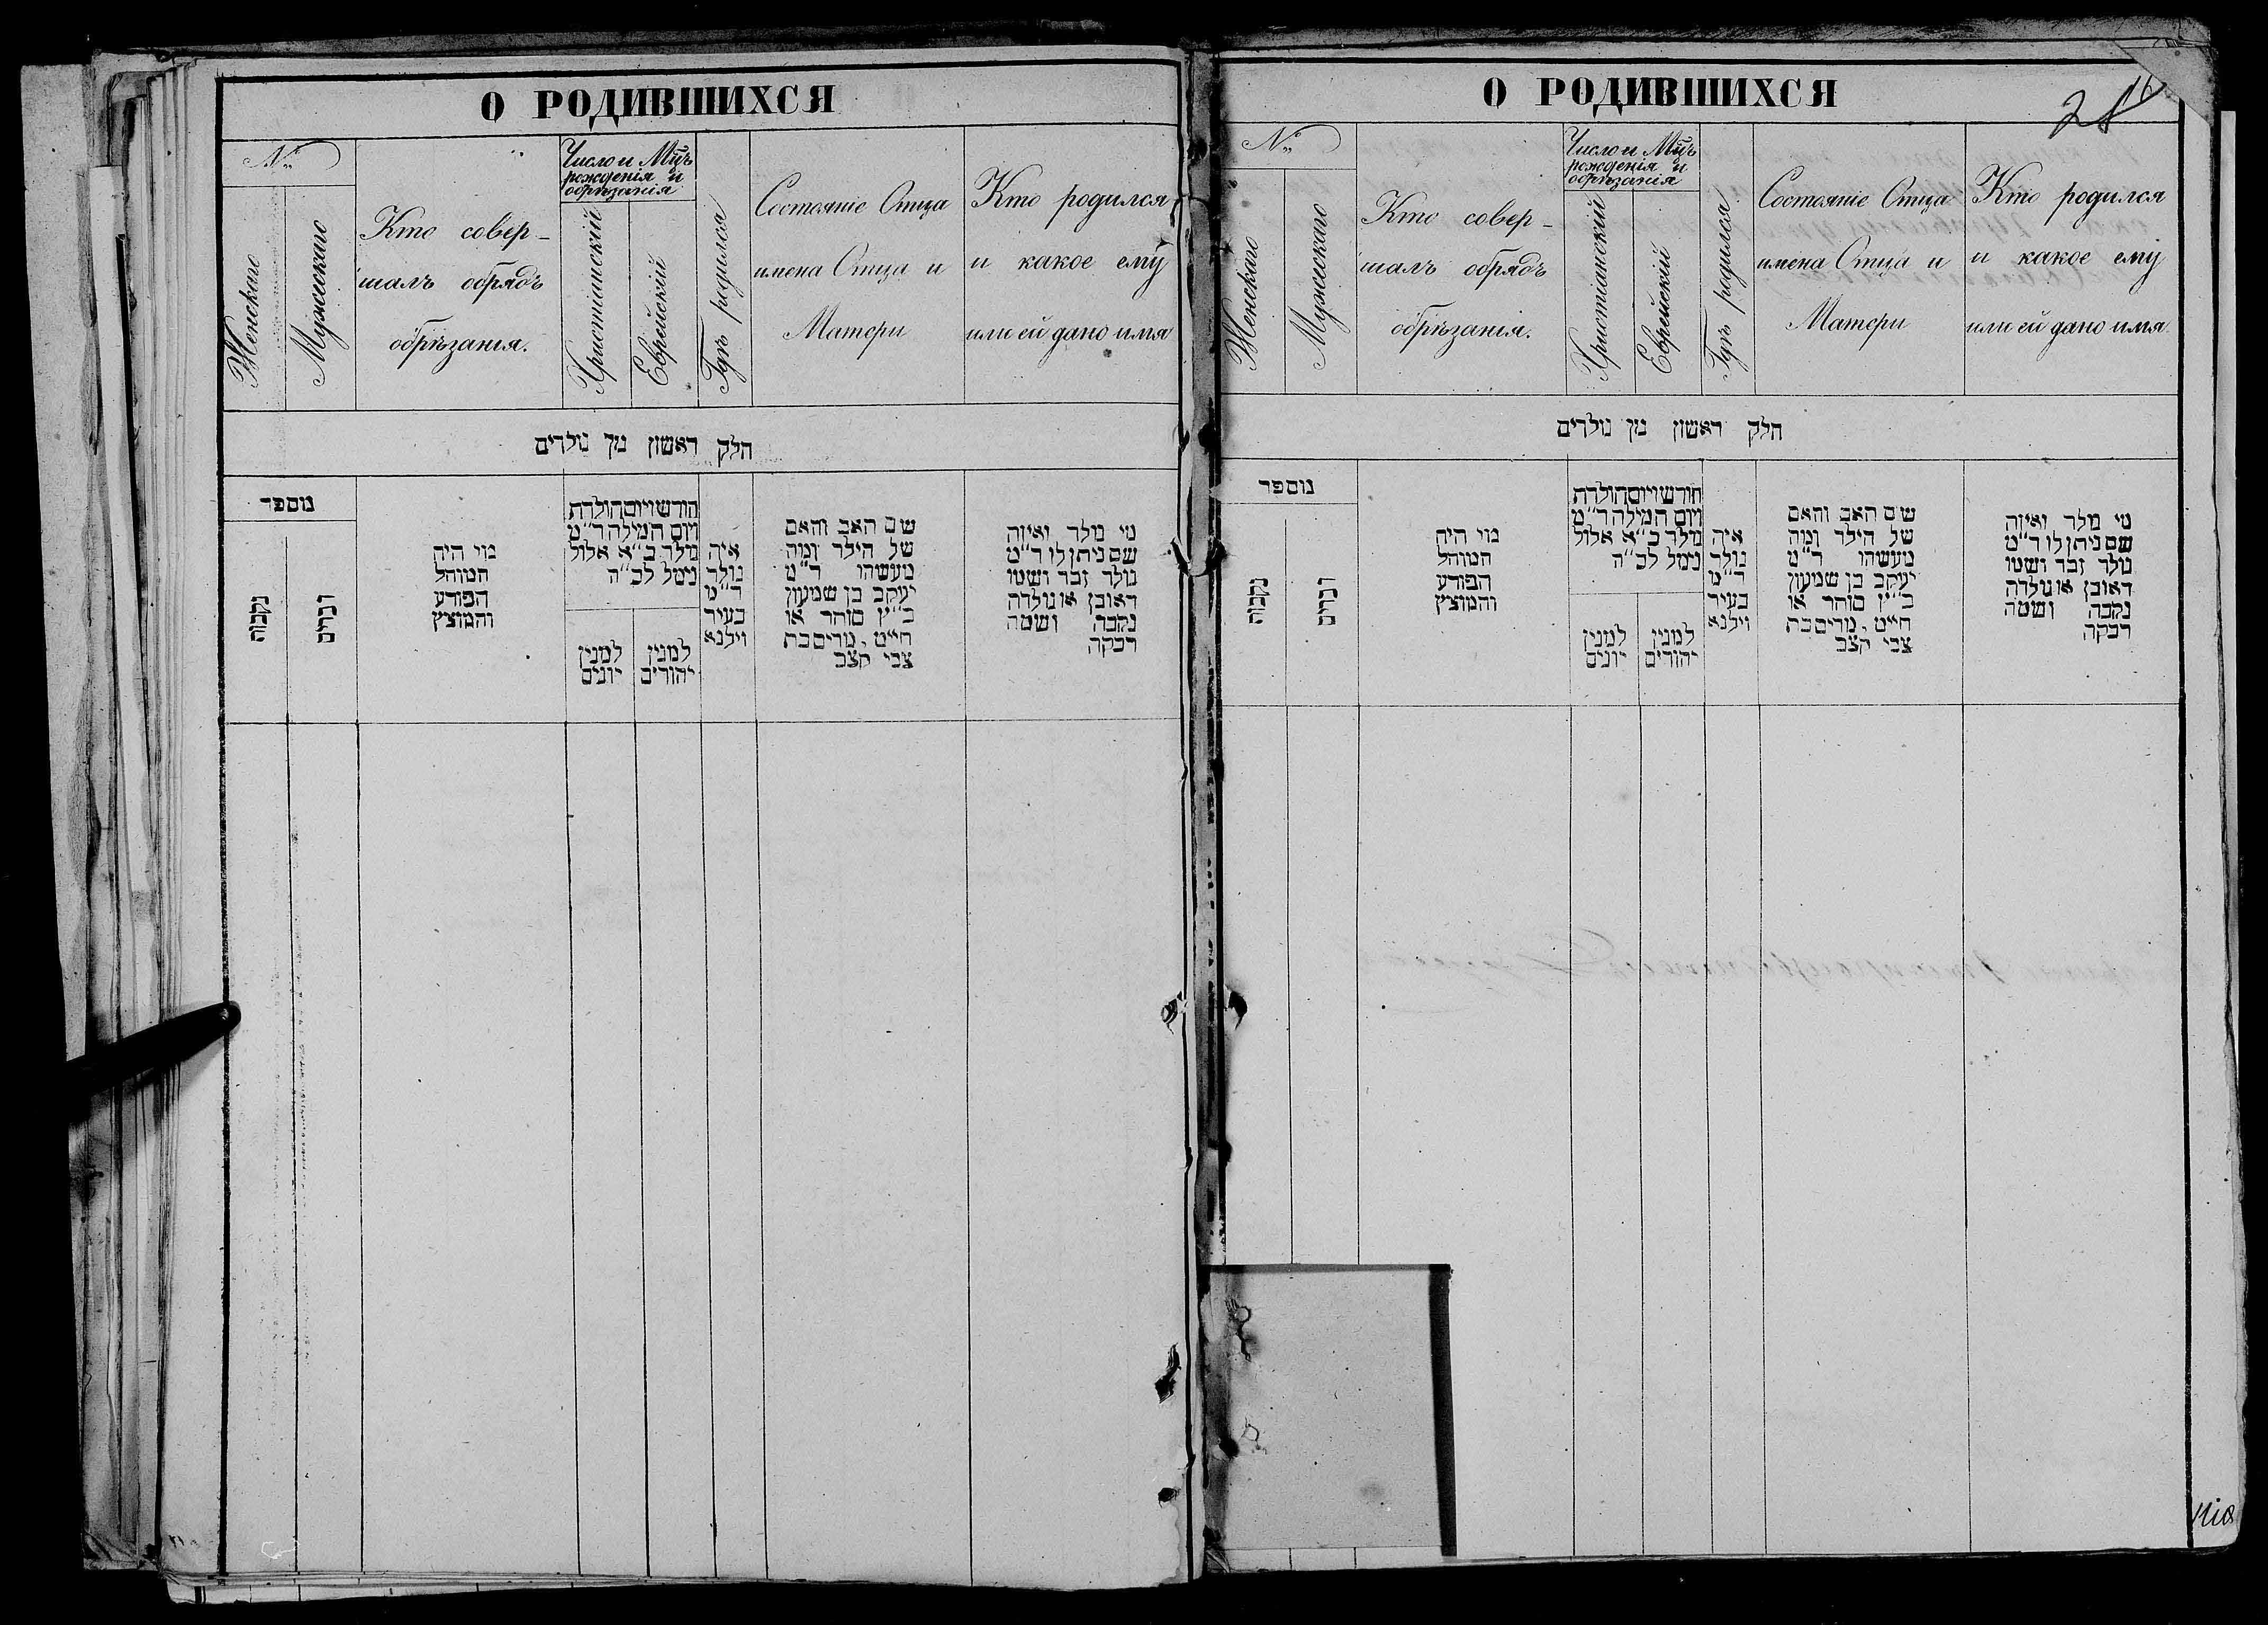 О РОДИВШИХСЯ
№
Женскаго
Мужескаго
Кто совер-
шалъ обрядъ
обрѣзанія.
Число и Мцъ
рожденія и
обрѣзанія
Христіанскій
Еврейскій
Гдѣ родился
Состояніе Отца
имена Отца и
Матери
Кто родился
и какое ему
или ей дано имя
חלק ראשון מן נולדים
מספר
נקבות
זכרים
מי היה
המוהל
הפורע
והמוצץ
חודש ויום הולדת
ויום המילה ד״מ
נולד כ״א אלול
נימל לכ״ה
למנין
יונים
למנין
יהודים
איה
נולד
ד״מ
בעיר
וילנא
שם האב והאם
של הילד ומה
מעשהו ד״מ
יעקב בן שמעון
כ״ץ סוחר או
חייט, מרים בת
צבי קצב
מי נולד ואיזה
שם ניתן לו ד״מ
נולד זכר ושמו
ראובן או נולדה
נקבה ושמה
רבקה
О РОДИВШИХСЯ
28
16
№
Женскаго
Мужескаго
Кто совер-
шалъ обрядъ
обрѣзанія.
Число и Мцъ
рожденія и
обрѣзанія
Христіанскій
Еврейскій
Гдѣ родился
Состояніе Отца
имена Отца и
Матери
Кто родился
и какое ему
или ей дано имя
חלק ראשון מן נולדים
מספר
נקבות
זכרים
מי היה
המוהל
הפורע
והמוצץ
חודש ויום הולדת
ויום המילה ד״מ
נולד כ״א אלול
נימל לכ״ה
למנין
יונים
למנין
יהודים
איה
נולד
ד״מ
בעיר
וילנא
שם האב והאם
של הילד ומה
מעשהו ד״מ
יעקב בן שמעון
כ״ץ סוחר או
חייט, מרים בת
צבי קצב
מי נולד ואיזה
שם ניתן לו ד״מ
נולד זכר ושמו
ראובן או נולדה
נקבה ושמה
רבקה